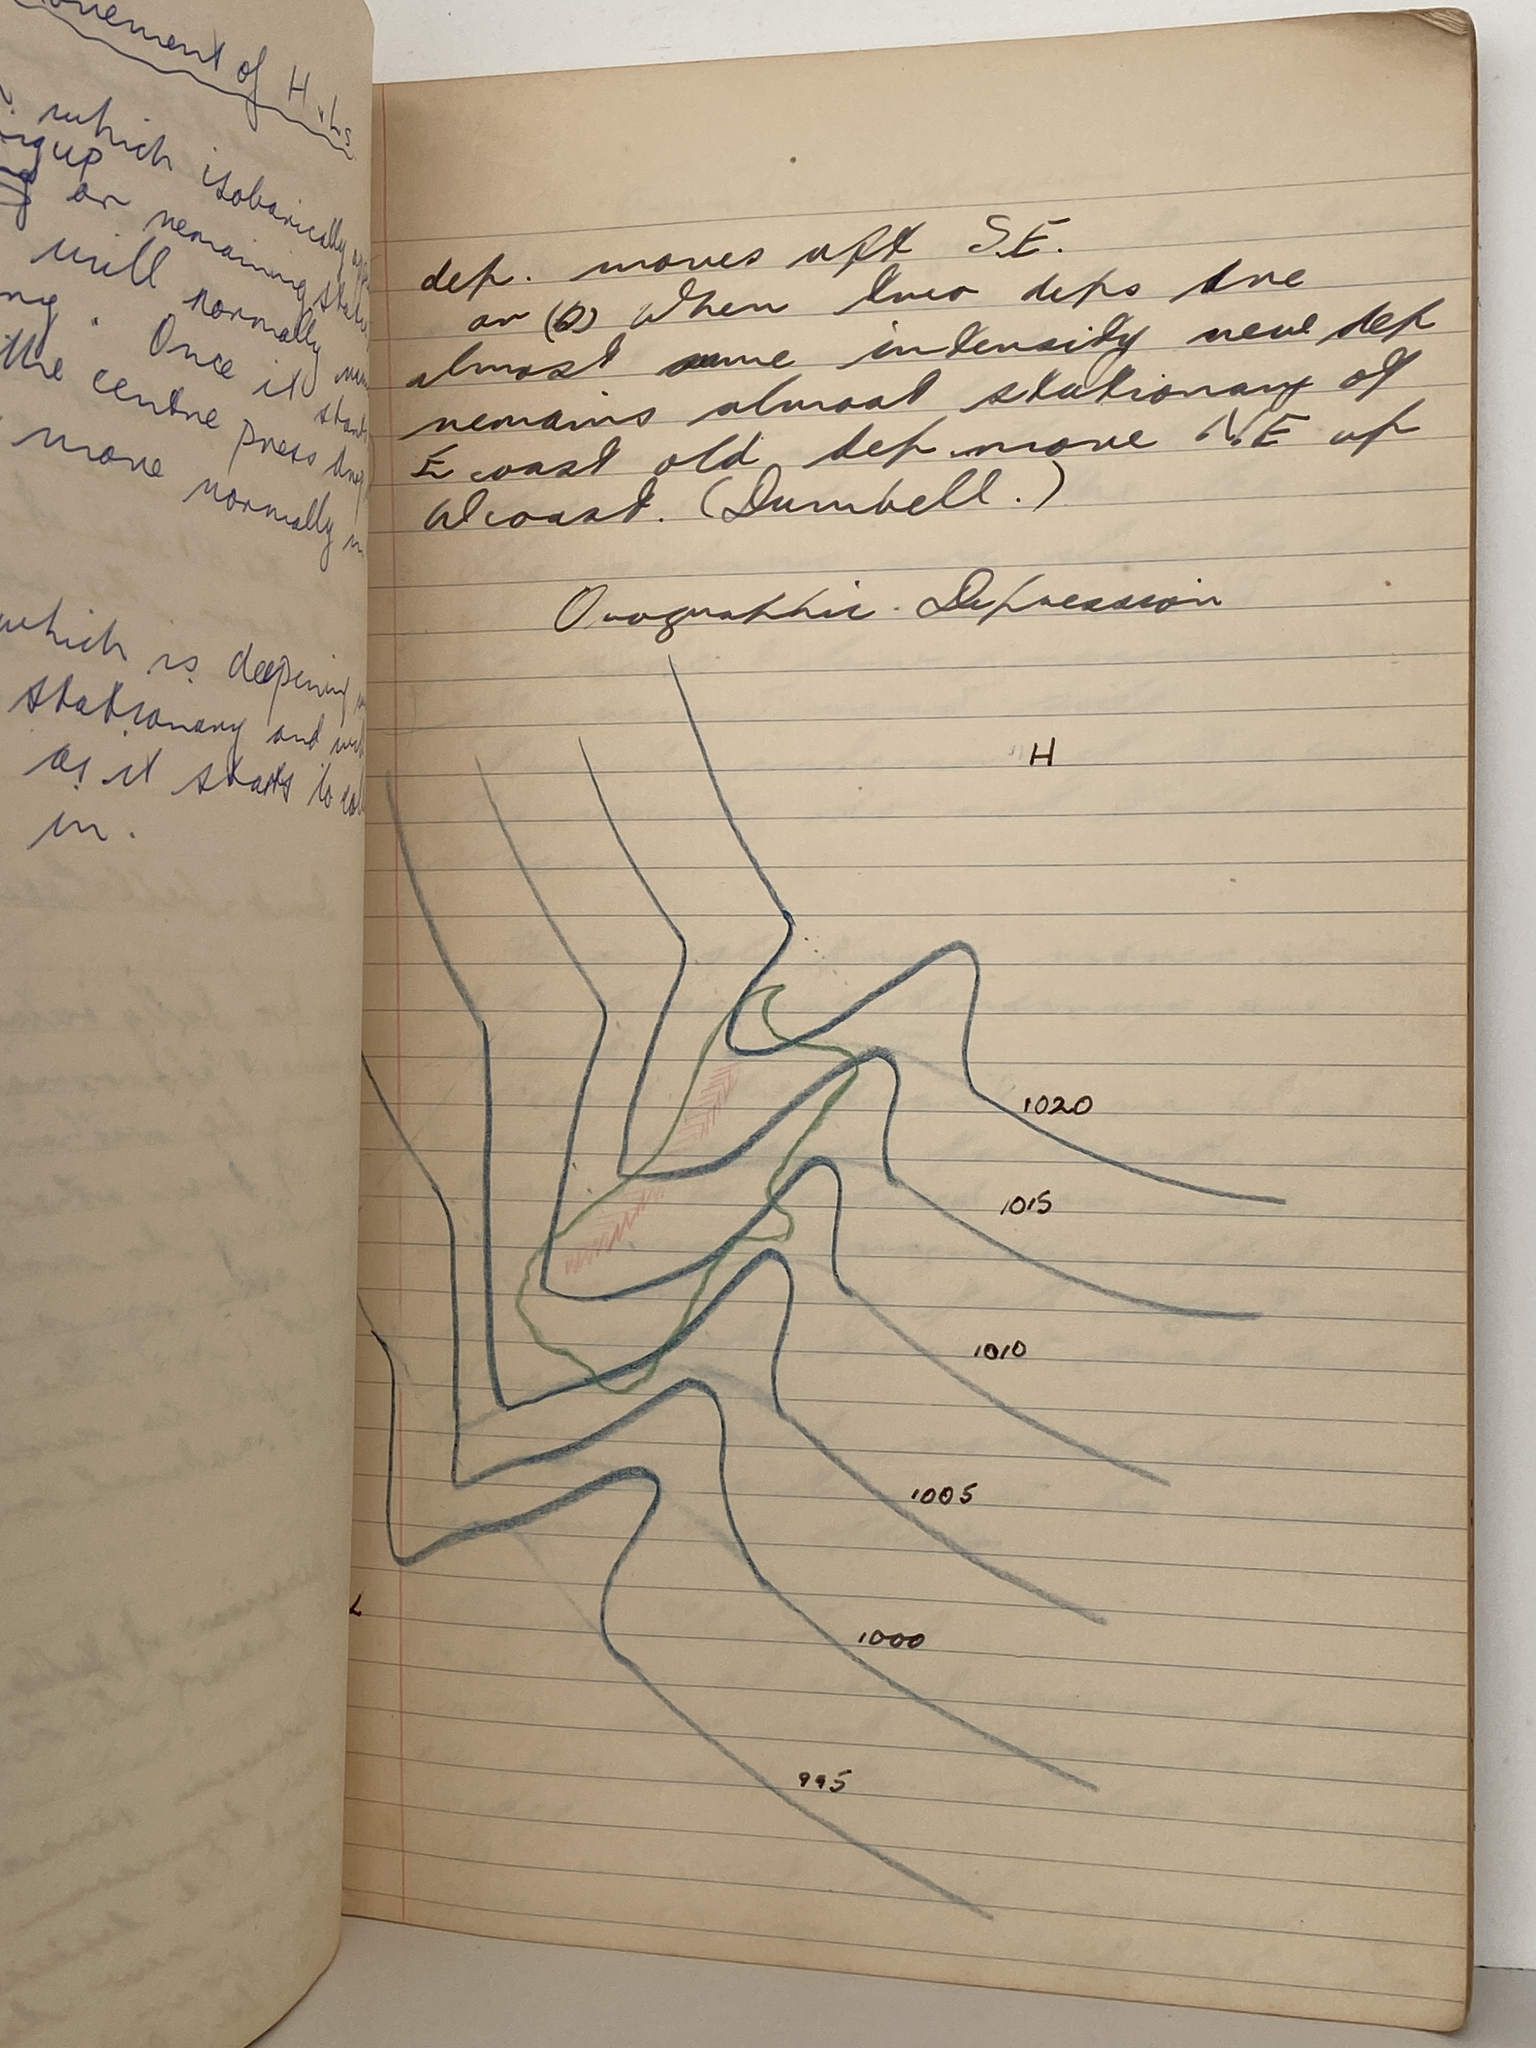 ovement of H & Ls
which isobarically
up
or remaining
will normally
Once it
the centre press
move normally
which is deepining
stationary and
as it starts to
in.
dep. moves off S.E.
or (b) When two deps are
almost same intensity new dep
remains almost stationary off
E coast old dep. move N.E up
W coast. (Dumbell.)
Orographic Depression
H
1020
1015
1010
1005
1000
995
L